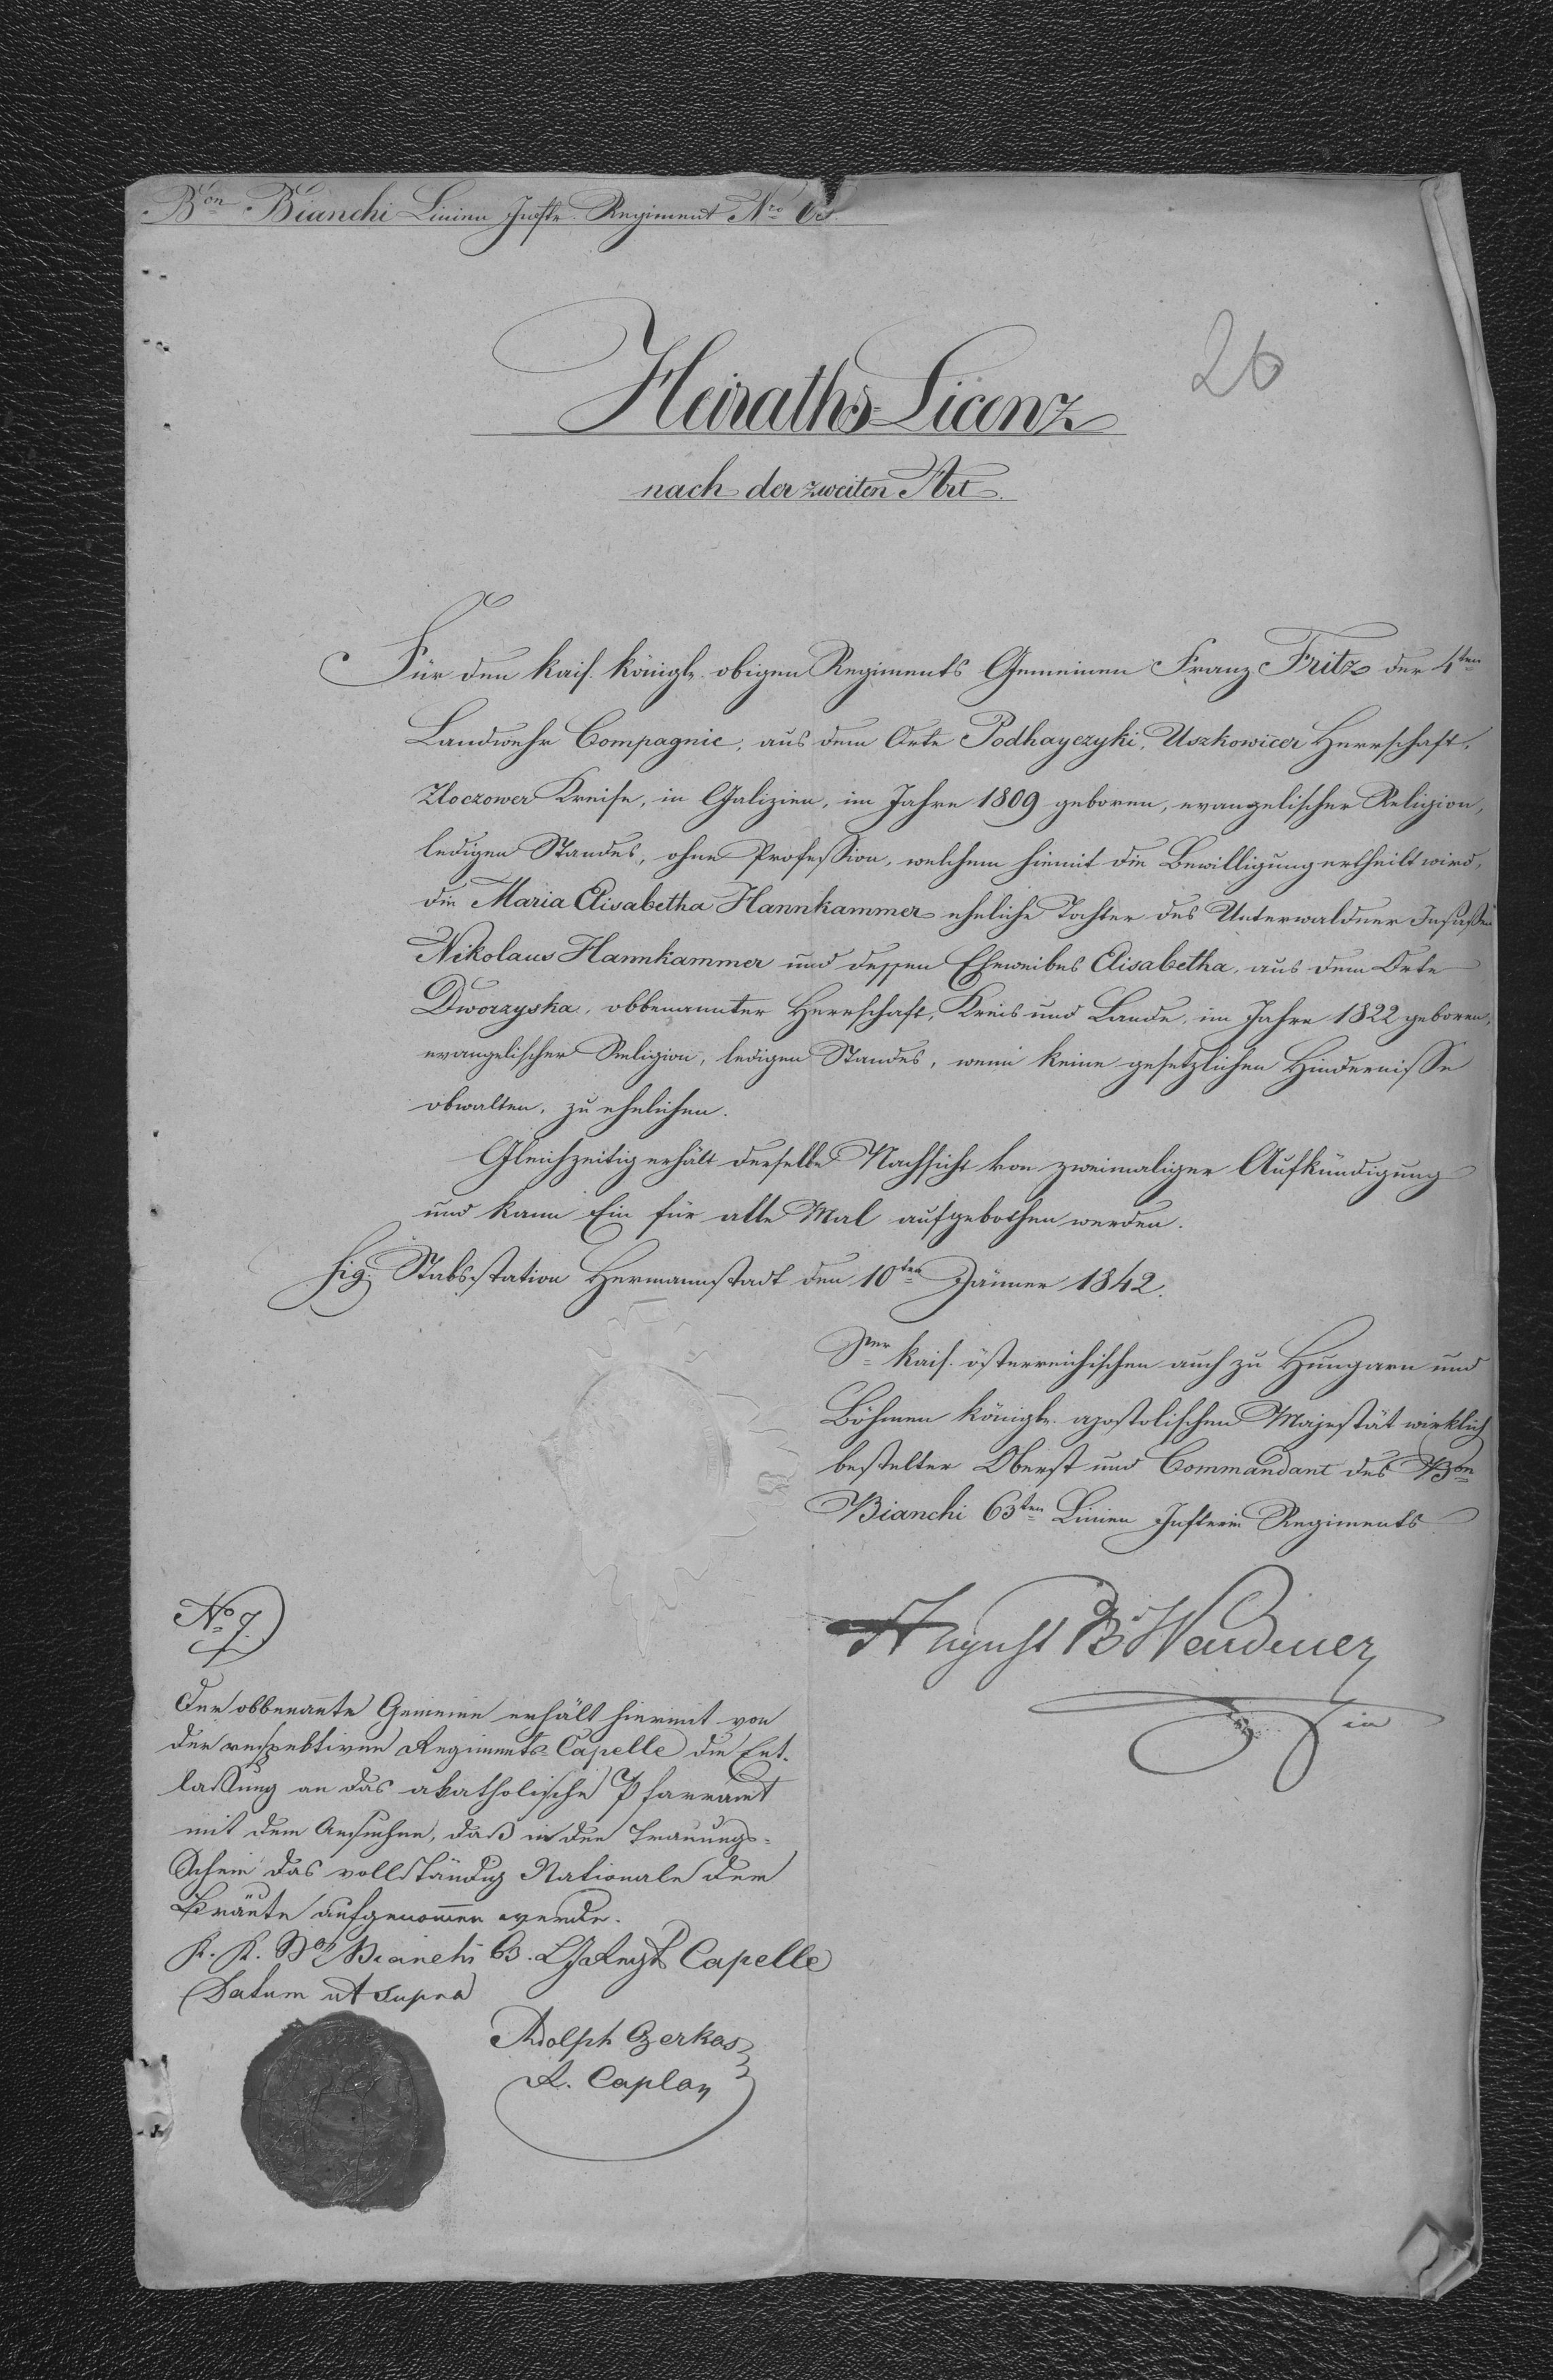 Bon Bianchi Linien Inftr. Regiment Nro 63.
26
Heiraths-Licenz
nach der zweiten Art.
Für den kais. königl. obigen Regiments Gemeinen Franz Fritz der 4ten
Landwehr Compagnie, aus dem Orte Podhayczyki, Uszkowicer Herrschaft,
Zloczower Kreise, in Galizien, im Jahre 1809 geboren, evangelischer Religion,
ledigen Standes, ohne Profession, welchem hiemit die Bewilligung ertheilt wird,
die Maria Elisabetha Hannkammer eheliche Tochter des Unterwaldner Insaßen
Nikolaus Hannkammer und dessen Eheweibes Elisabetha, aus dem Orte
Dworzyska, obbenannter Herrschaft, Kreis und Lande, im Jahre 1822 geboren,
evangelischer Religion, ledigen Standes, wenn keine gesetzlichen Hindernisse
obwalten, zu ehelichen.
Gleichzeitig erhält derselbe Nachsicht von zweimaliger Aufkündigung
und kann Ein für alle Mal aufgebothen werden.
Sig. Stabsstation Hermannstadt den 10ten Jänner 1842.
Sner kais. österreichischen auch zu Hungarn und
Böhmen königl. apostolischen Majestät wirklich
bestellter Oberst und Commandant des Bon
Bianchi 63ten Linien Inftrie Regiments
August B Wardener
No 7.
Der obbenante Gemeine erhält hiermit von
der respektiven Regiments-Capelle die Ent-
lassung an das akatholische Pfarramt
mit dem Ansuchen, daß in den Trauungs-
Schein das vollständig Nationale der
Bräute aufgenommen werde.
K. K. Bon Bianchi 63. L I Regts Capelle
Datum ut supra
Adolph Czerkas
R. Caplan